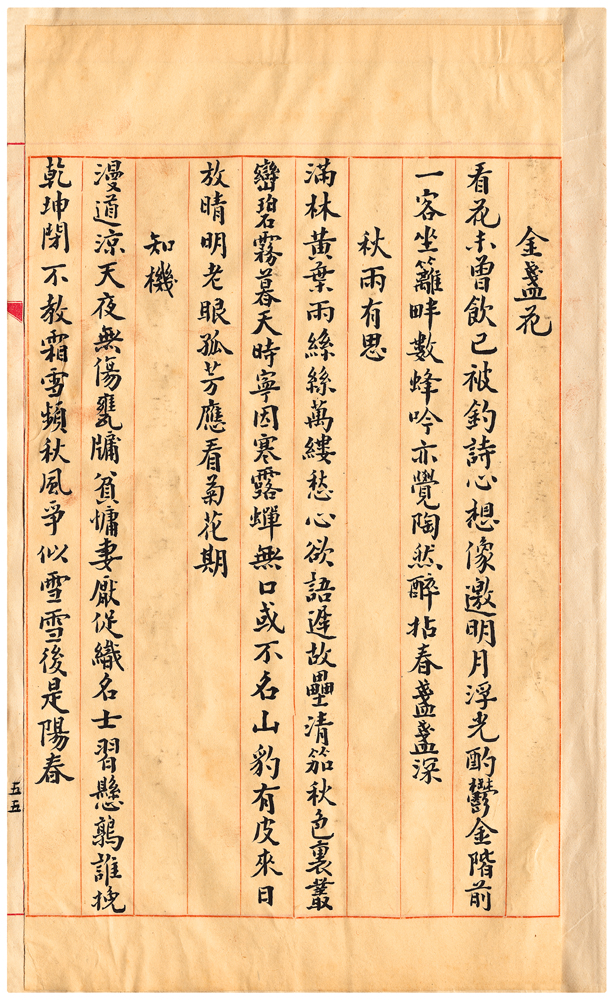 金盞花
看花未曾飲已被釣詩心想像邀明月浮光酌鬱金階前
一客坐籬畔數蜂吟亦覺陶然醉拈春盞盞深
秋雨有思
滿林黃葉雨絲絲萬縷愁心欲語遲故壘清笳秋色裏叢
巒碧霧暮天時寧因寒露蟬無口或不名山豹有皮來日
放晴明老眼孤芳應看菊花期
知機
漫道涼天夜無傷甕牖貧慵妻厭促織名士習懸鶉誰挽
乾坤閉不教霜雪頻秋風爭似雪雪後是陽春
五五